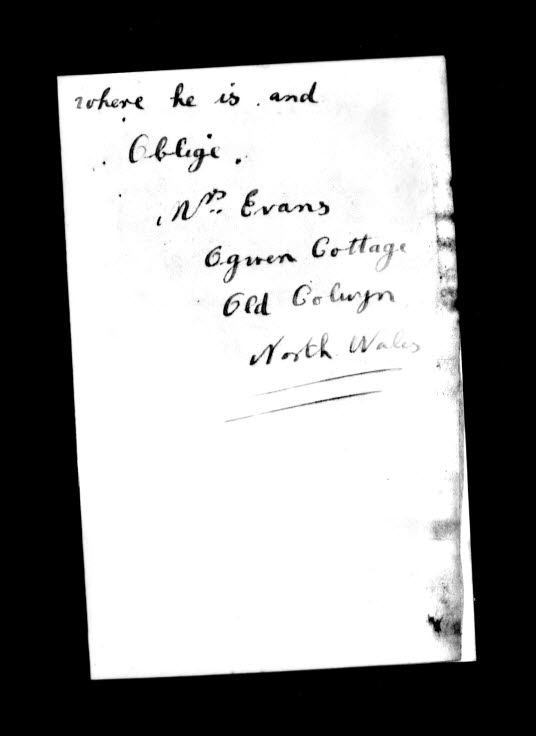 where he is and
Oblige.
Mrs Evans
Ogwen Cottage
Old Colwyn
North Wales